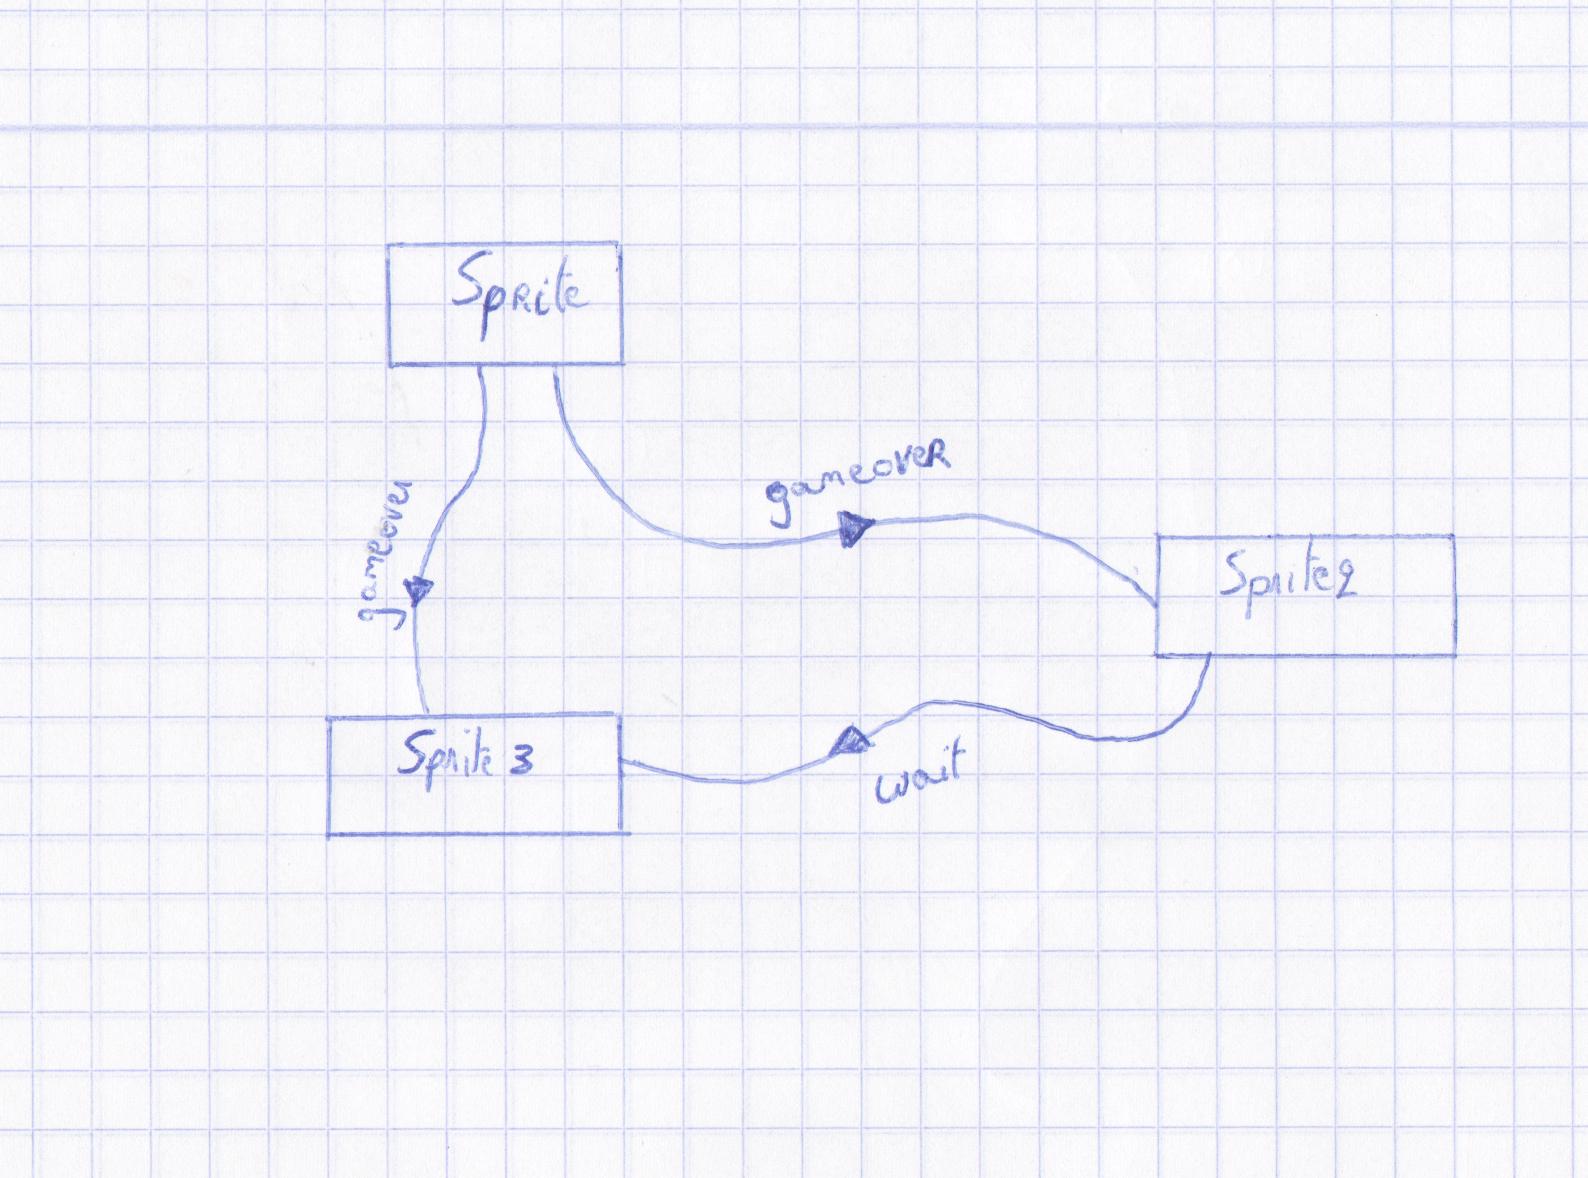 Sprite
gameover
gameover
Sprite2
Sprite 3
wait